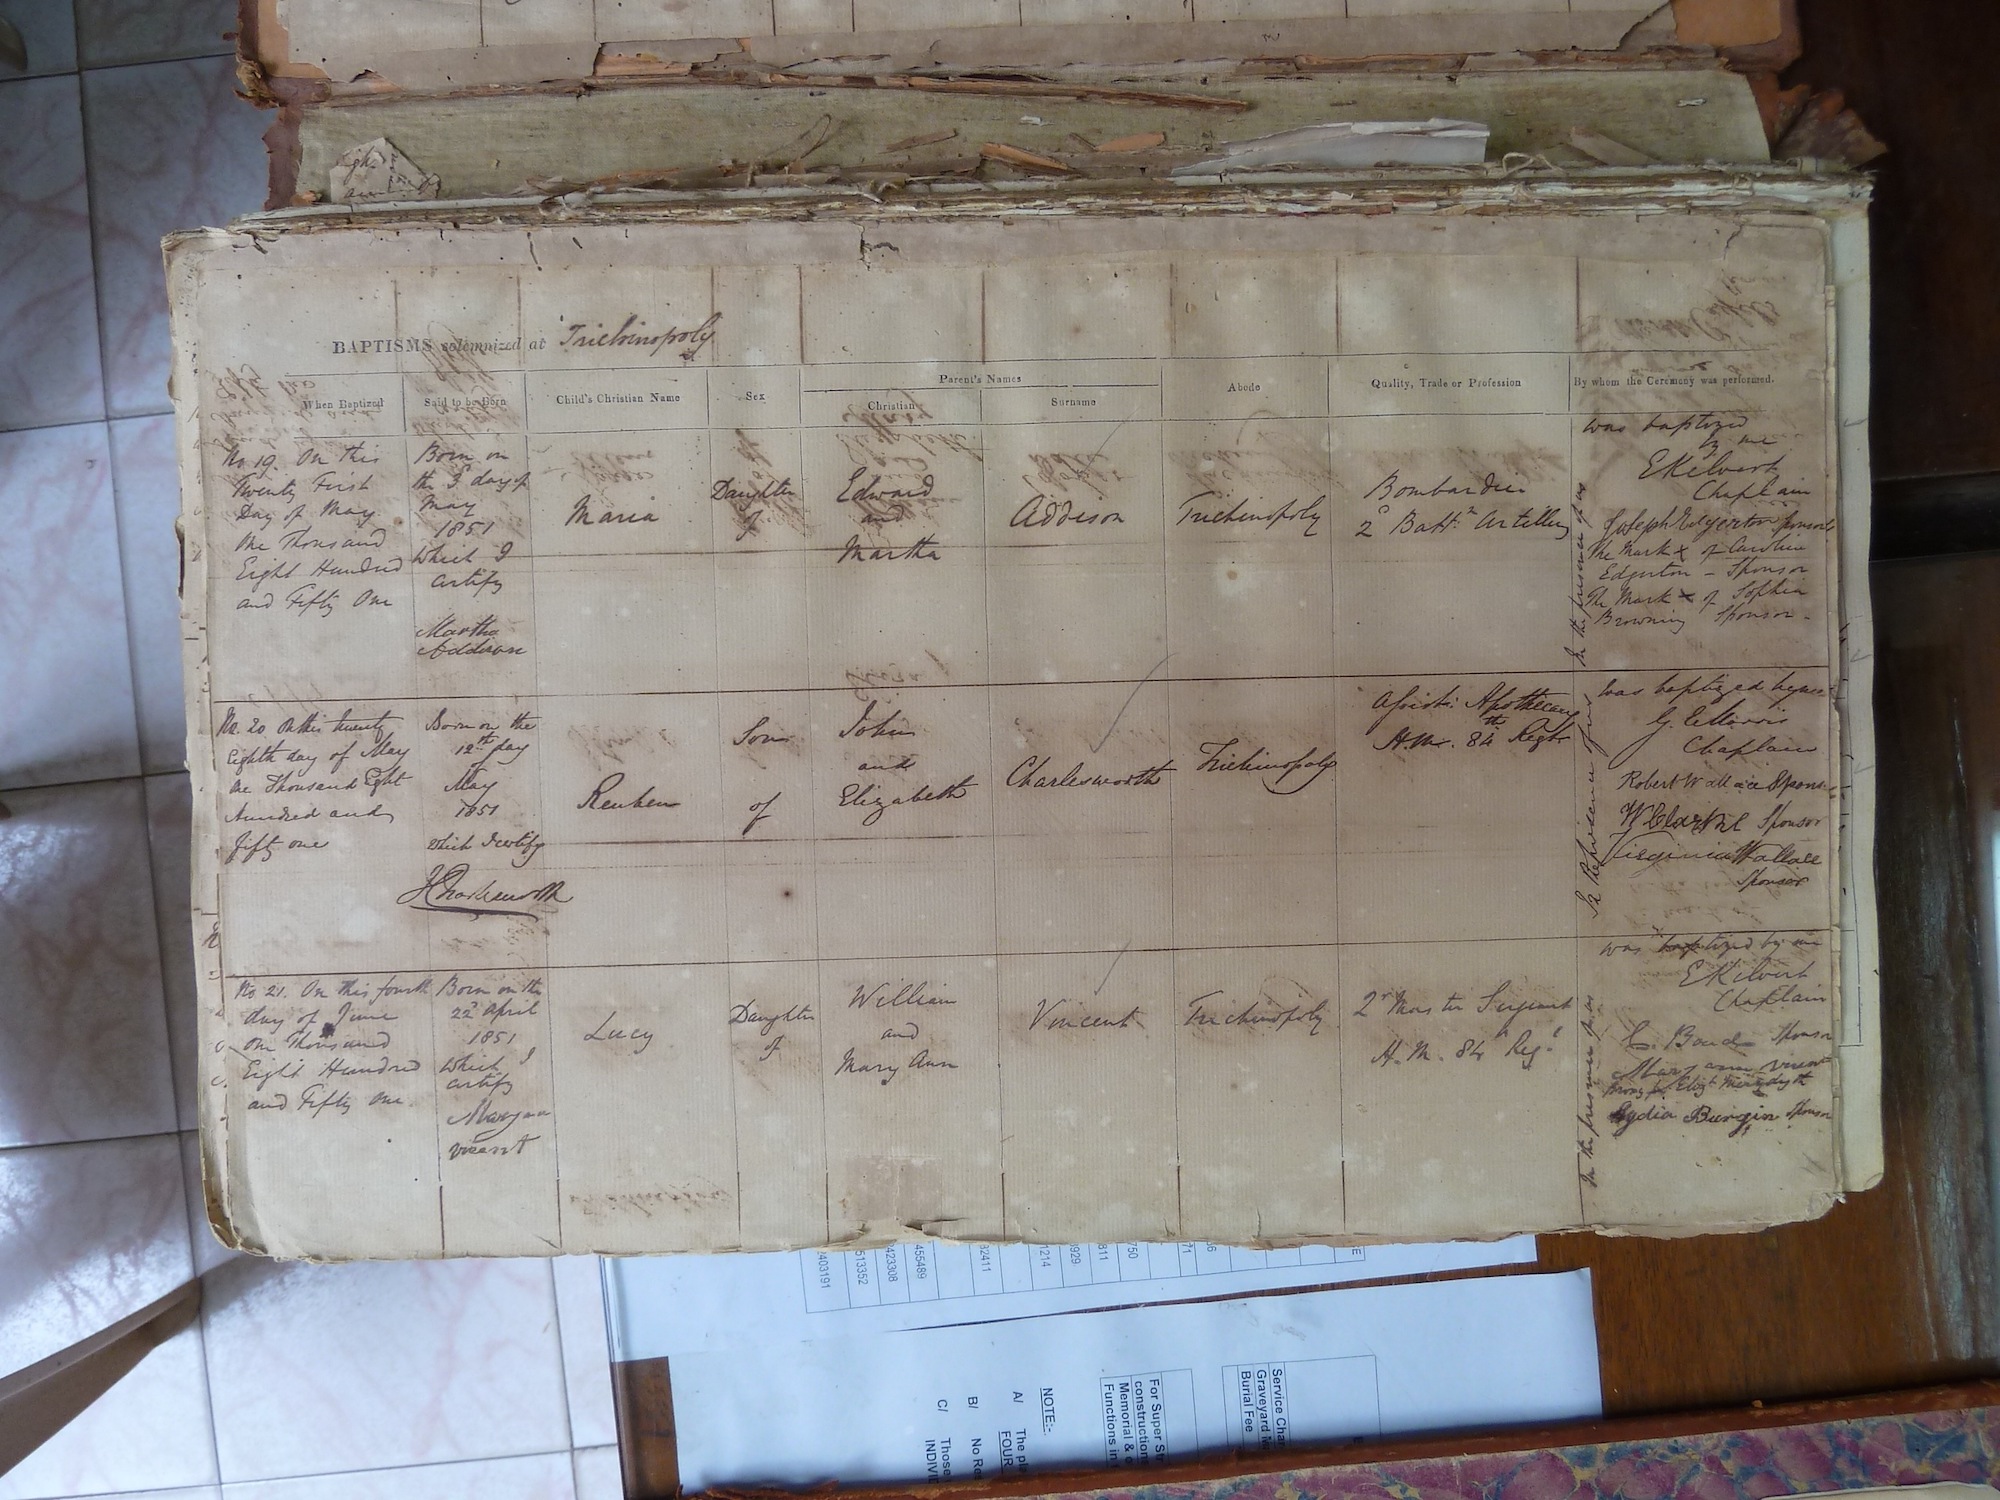 BAPTISMS solemnized at Trichinopoly
When Baptized
Said to be Born
Child's Christian Name
Sex
Parent's Names
Christian
Surname
Abode
Quality, Trade or Profession
By whom the Ceremony was performed.
No 19. On this
Twenty First
Day of May
One Thousand
Eight Hundred
and Fifty One
Born on
the 3d day of
May
1851
Which I
certify
Martha
Addison
Maria
Daughter
of
Edward
and
Martha
Addison
Trichinopoly
Bombardier
2d Battn Artillery
was baptized
by me
E Kilvert
Chaplain
Joseph Edgerton Sponsor
The Mark x of Caroline
Edgerton - Sponsor
The Mark x of Sophia
Browning Sponsor -
In the presence of us
No. 20 On this twenty
Eighth day of May
One Thousand Eight
Hundred and
fifty one
Born on the
12th day
of
May
1851
which I certify
J Charlesworth
Reuben
Son
of
John
and
Elizabeth
Charlesworth
Trichinopoly
Assist: Apothecary
H.M. 84th Regt
Was baptized by me
G. E. Morris
Chaplain
Robert Wallace Sponsor
W Clarke Sponsor
Virginia Wallace
Sponsor
In the presence of us
No 21. On this fourth
day of June
One Thousand
Eight Hundred
and Fifty One
Born on the
22d April
1851
Which I
certify
Maryann
vincent
Lucy
Daughter
of
William
and
Mary Ann
Vincent
Trichinopoly
2r Master Serjeant
H.M. 84th Regt
was baptized by me
E Kilvert
Chaplain
Sponsor
Mary ann vincent
Lydia Burgin Sponsor
In the presence of us
2403191
513352
423308
455489
82411
1214
3929
811
750
71
06
Service Char
Graveyard M
Burial Fee
For Super Str
construction
Memorial &
Functions in
NOTE:-
A/ The pl
FOUR
B/ No Re
C/ Those
INDIVI